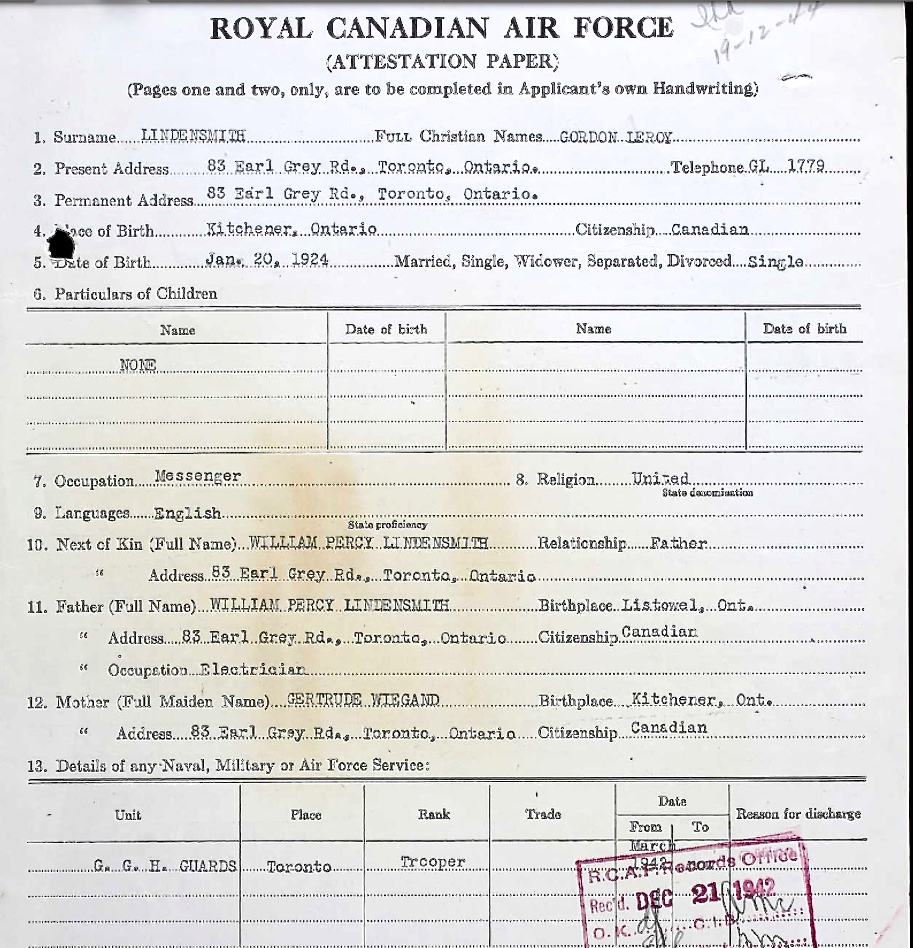 ROYAL CANADIAN AIR FORCE
19-12-44
(ATTESTATION PAPER)
(Pages one and two, only, are to be completed in Applicant's own Handwriting)
1. Surname LINDENSMITH FULL Christian Names GORDON LEROY
2. Present Address 83 Earl Grey Rd., Toronto, Ontario. Telephone GL 1779
3. Permanent Address 83 Earl Grey Rd., Toronto, Ontario.
4. Place of Birth Kitchener, Ontario Citizenship Canadian
5. Date of Birth Jan. 20, 1924 Married, Single, Widower, Separated, Divorced Single
6. Particulars of Children
Name Date of birth Name Date of birth
NONE
7. Occupation Messenger 8. Religion United
State denomination
9. Languages English
State proficiency
10. Next of Kin (Full Name) WILLIAM PERCY LINDENSMITH Relationship Father
" Address 83 Earl Grey Rd., Toronto, Ontario
11. Father (Full Name) WILLIAM PERCY LINDENSMITH Birthplace Listowel, Ont.
" Address 83 Earl Grey Rd., Toronto, Ontario Citizenship Canadian
" Occupation Electrician
12. Mother (Full Maiden Name) GERTRUDE WIEGAND Birthplace Kitchener, Ont.
" Address 83 Earl Grey Rd., Toronto, Ontario Citizenship Canadian
13. Details of any Naval, Military or Air Force Service:
Unit Place Rank Trade Date Reason for discharge
From To
March
G. G. H. GUARDS Toronto Trooper 1942 now
R.C.A.F. Records Office
Rec'd. DEC 21 1942
O. K. C.I.B.